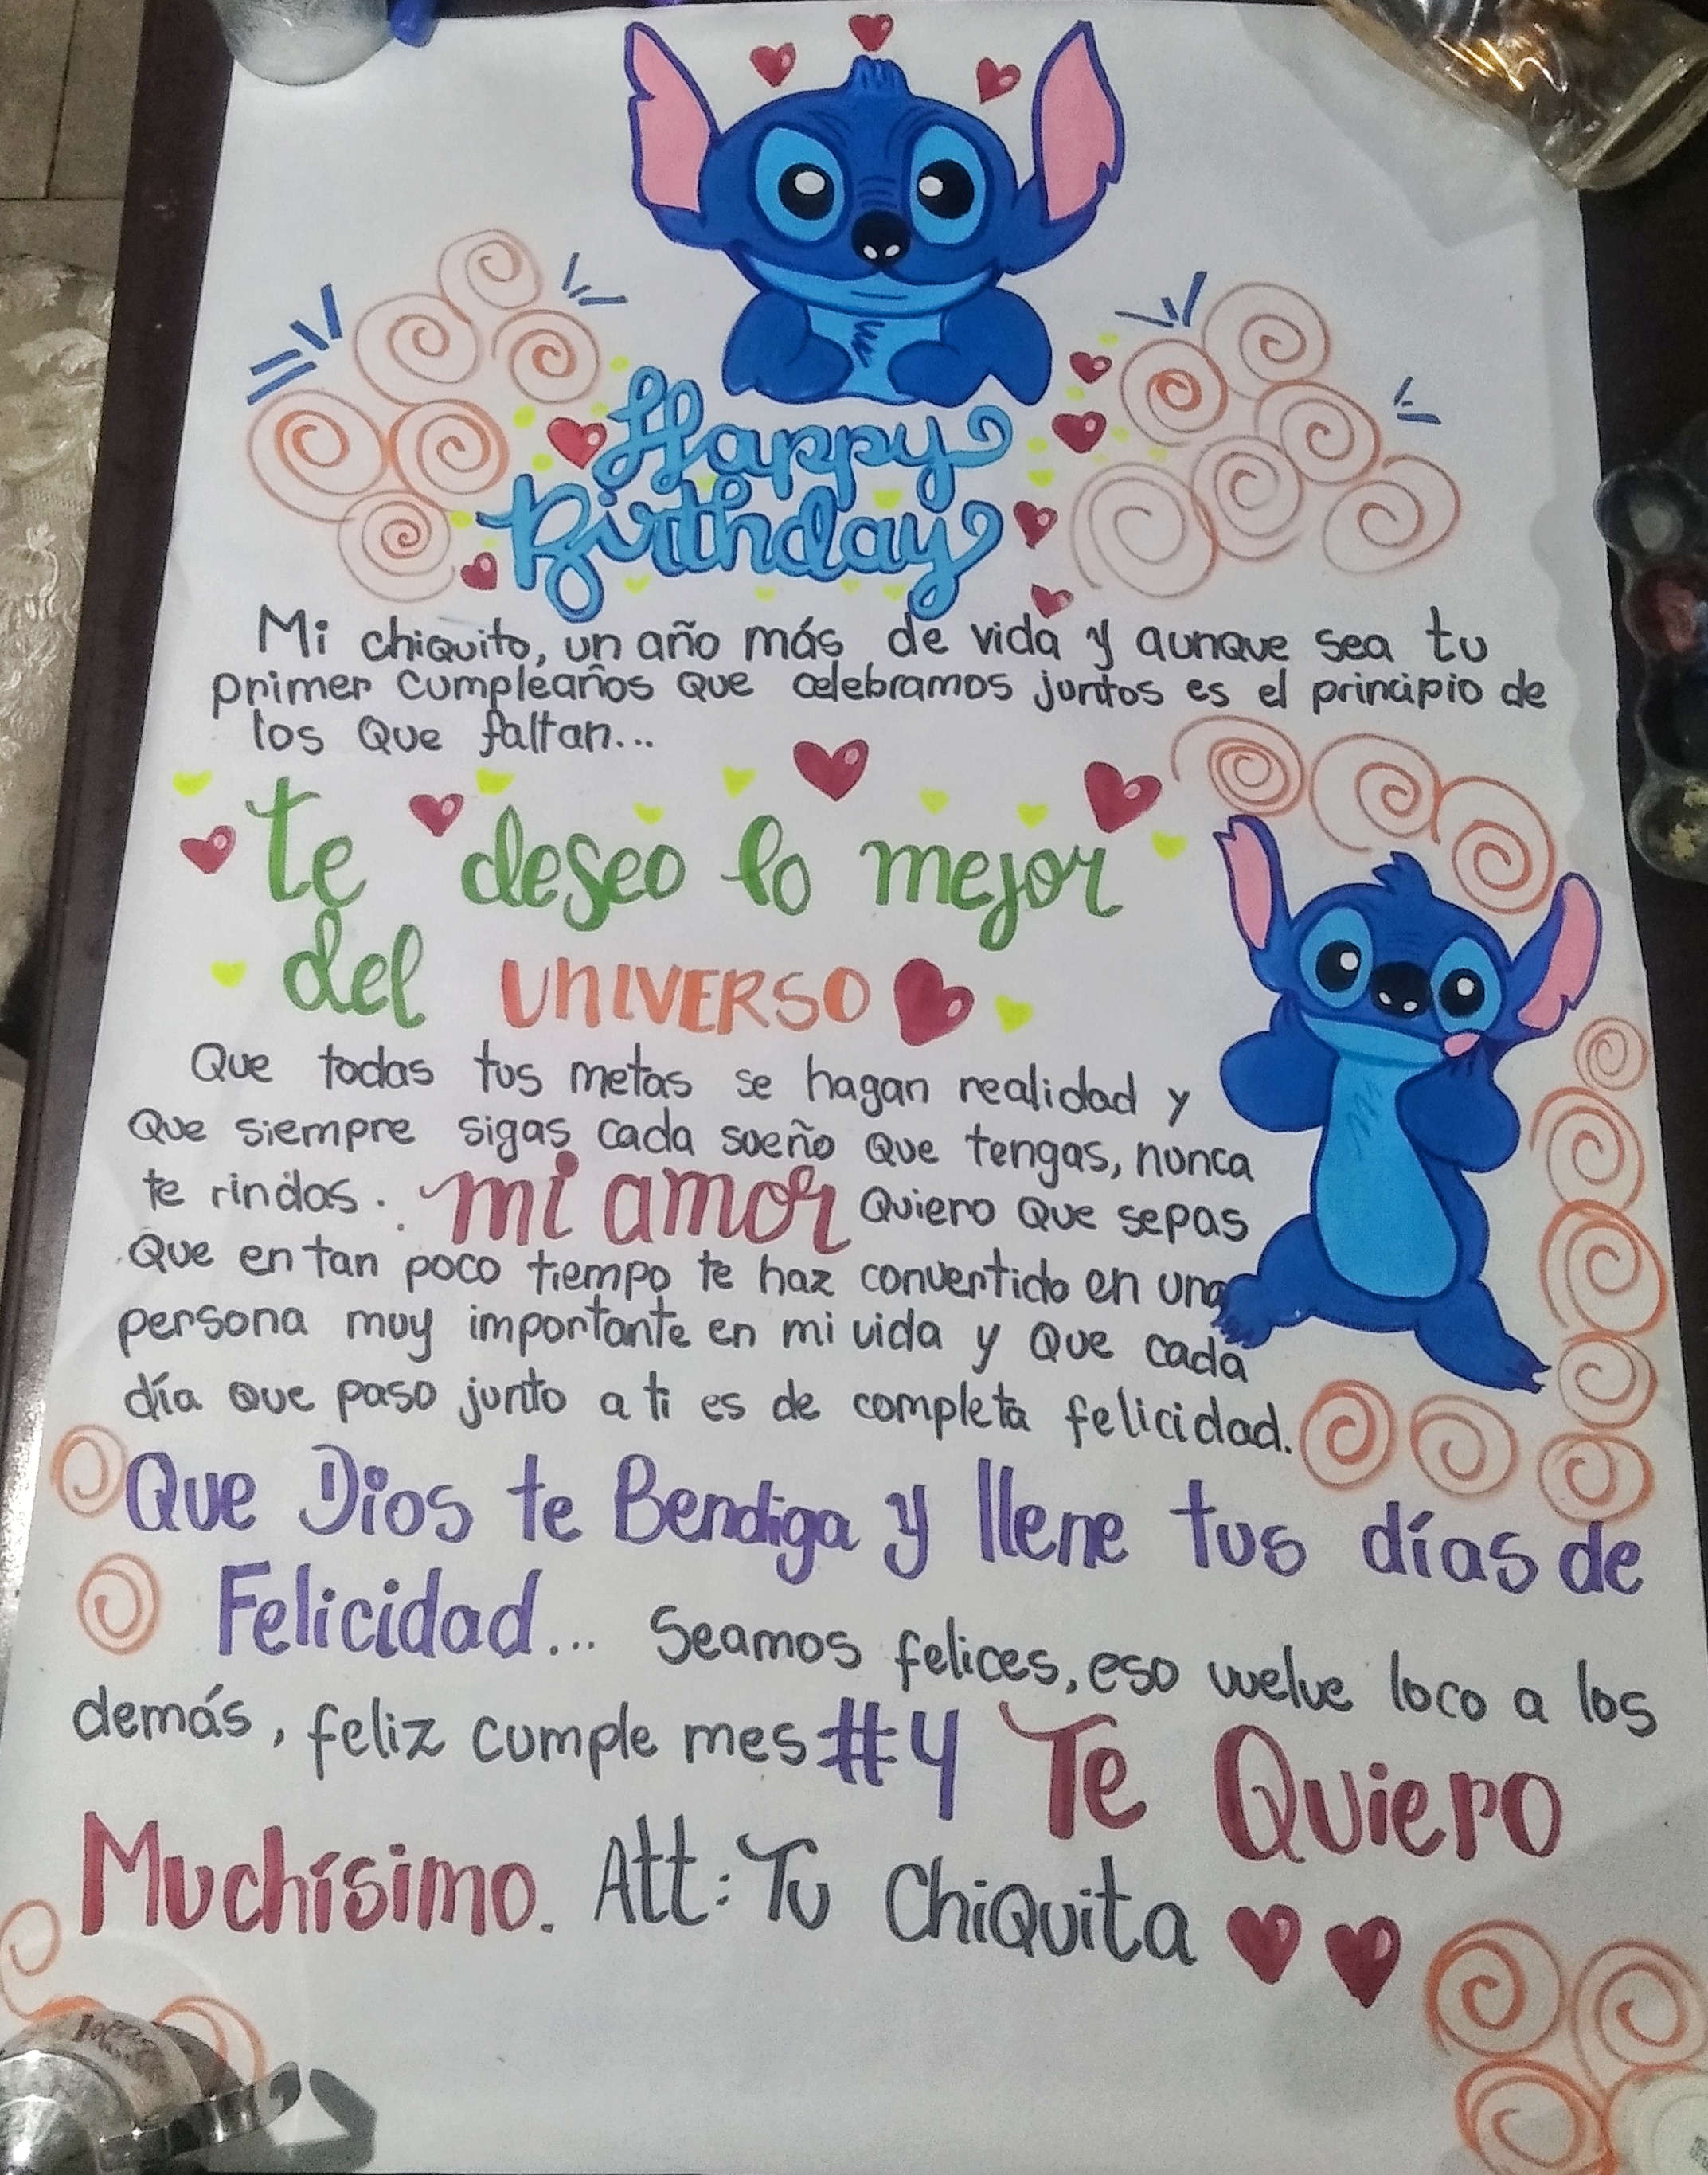 Happy
Birthday
Mi chiquito, un año más de vida y aunque sea tu
primer cumpleaños que celebramos juntos es el principio de
los que faltan...
te deseo lo mejor
del UNIVERSO
Que todas tus metas se hagan realidad y
que siempre sigas cada sueño que tengas, nunca
te rindas.. mi amor quiero que sepas
que en tan poco tiempo te haz convertido en una
persona muy importante en mi vida y que cada
día que paso junto a ti es de completa felicidad.
Que Dios te Bendiga y llene tus días de
Felicidad... Seamos felices, eso vuelve loco a los
demás, feliz cumple mes #4 Te Quiero
Muchísimo. Att: Tu Chiquita